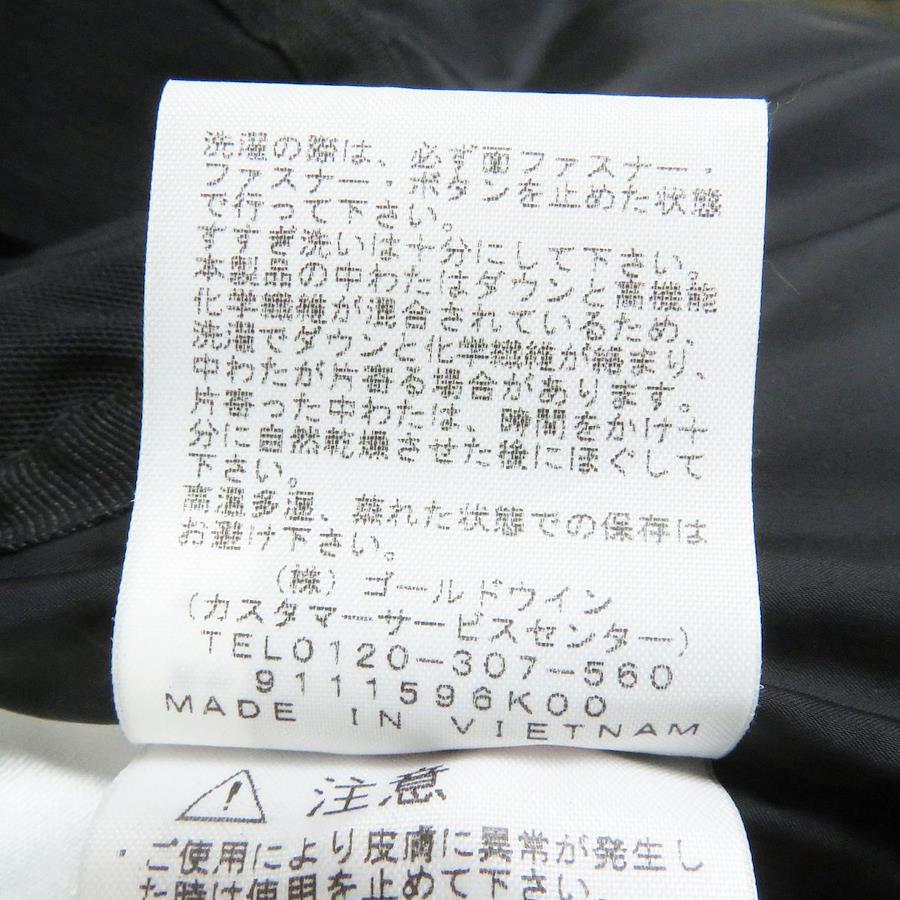 洗濯の際は、必ず面ファスナー・
ファスナー・ボタンを止めた状態
で行って下さい。
すすぎ洗いは十分にして下さい。
本製品の中わたはダウンと高機能
化学繊維が混合されているため、
洗濯でダウンと化学繊維が絡まり、
中わたが片寄る場合があります。
片寄った中わたは、時間をかけ十
分に自然乾燥させた後にほぐして
下さい。
高温多湿、蒸れた状態での保存は
お避け下さい。
(株)ゴールドウイン
(カスタマーサービスセンター)
TEL0120-307-560
9111596K00
MADE IN VIETNAM
注意
・ご使用により皮膚に異常が発生し
た時は使用を止めて下さい。